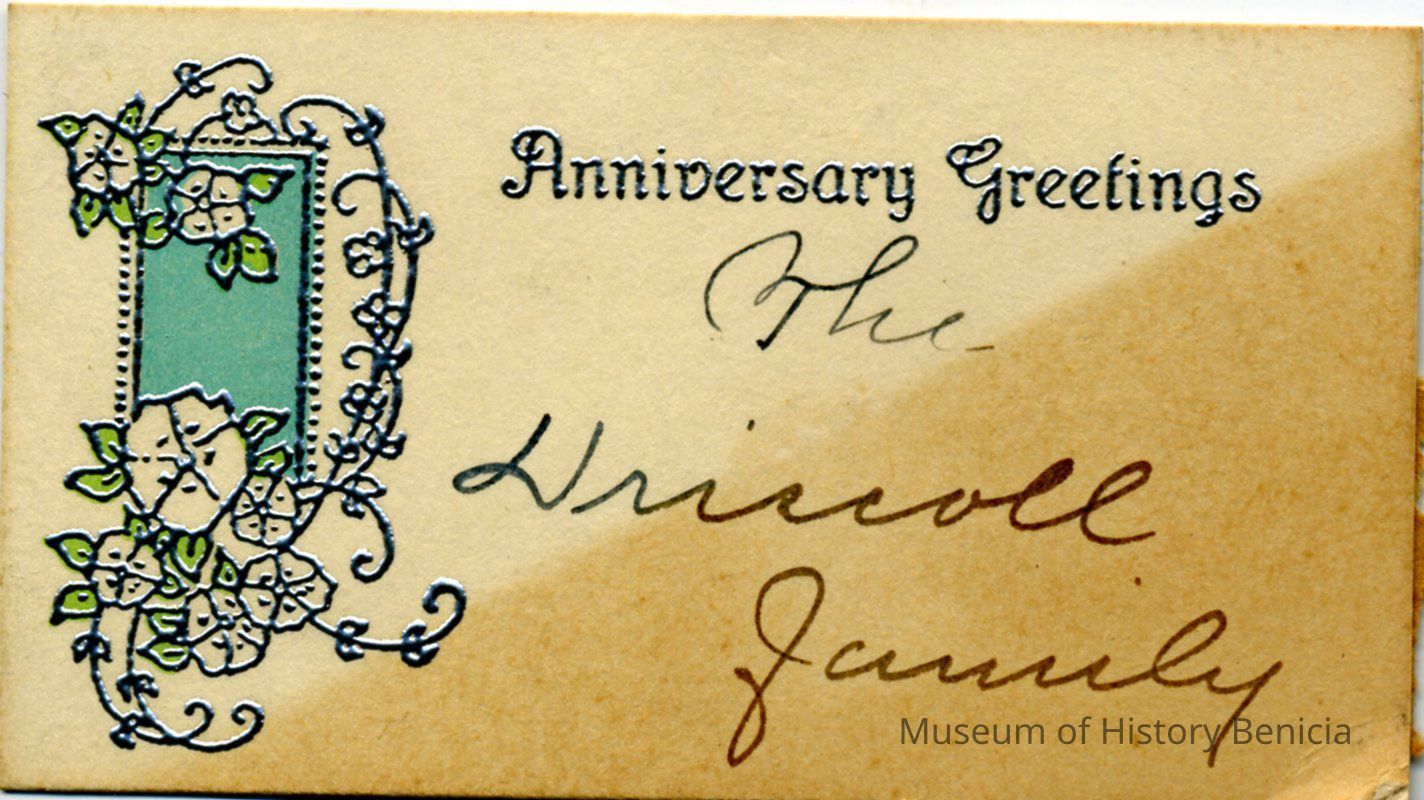 Anniversary Greetings
The
Driscoll
Family
Museum of History Benicia